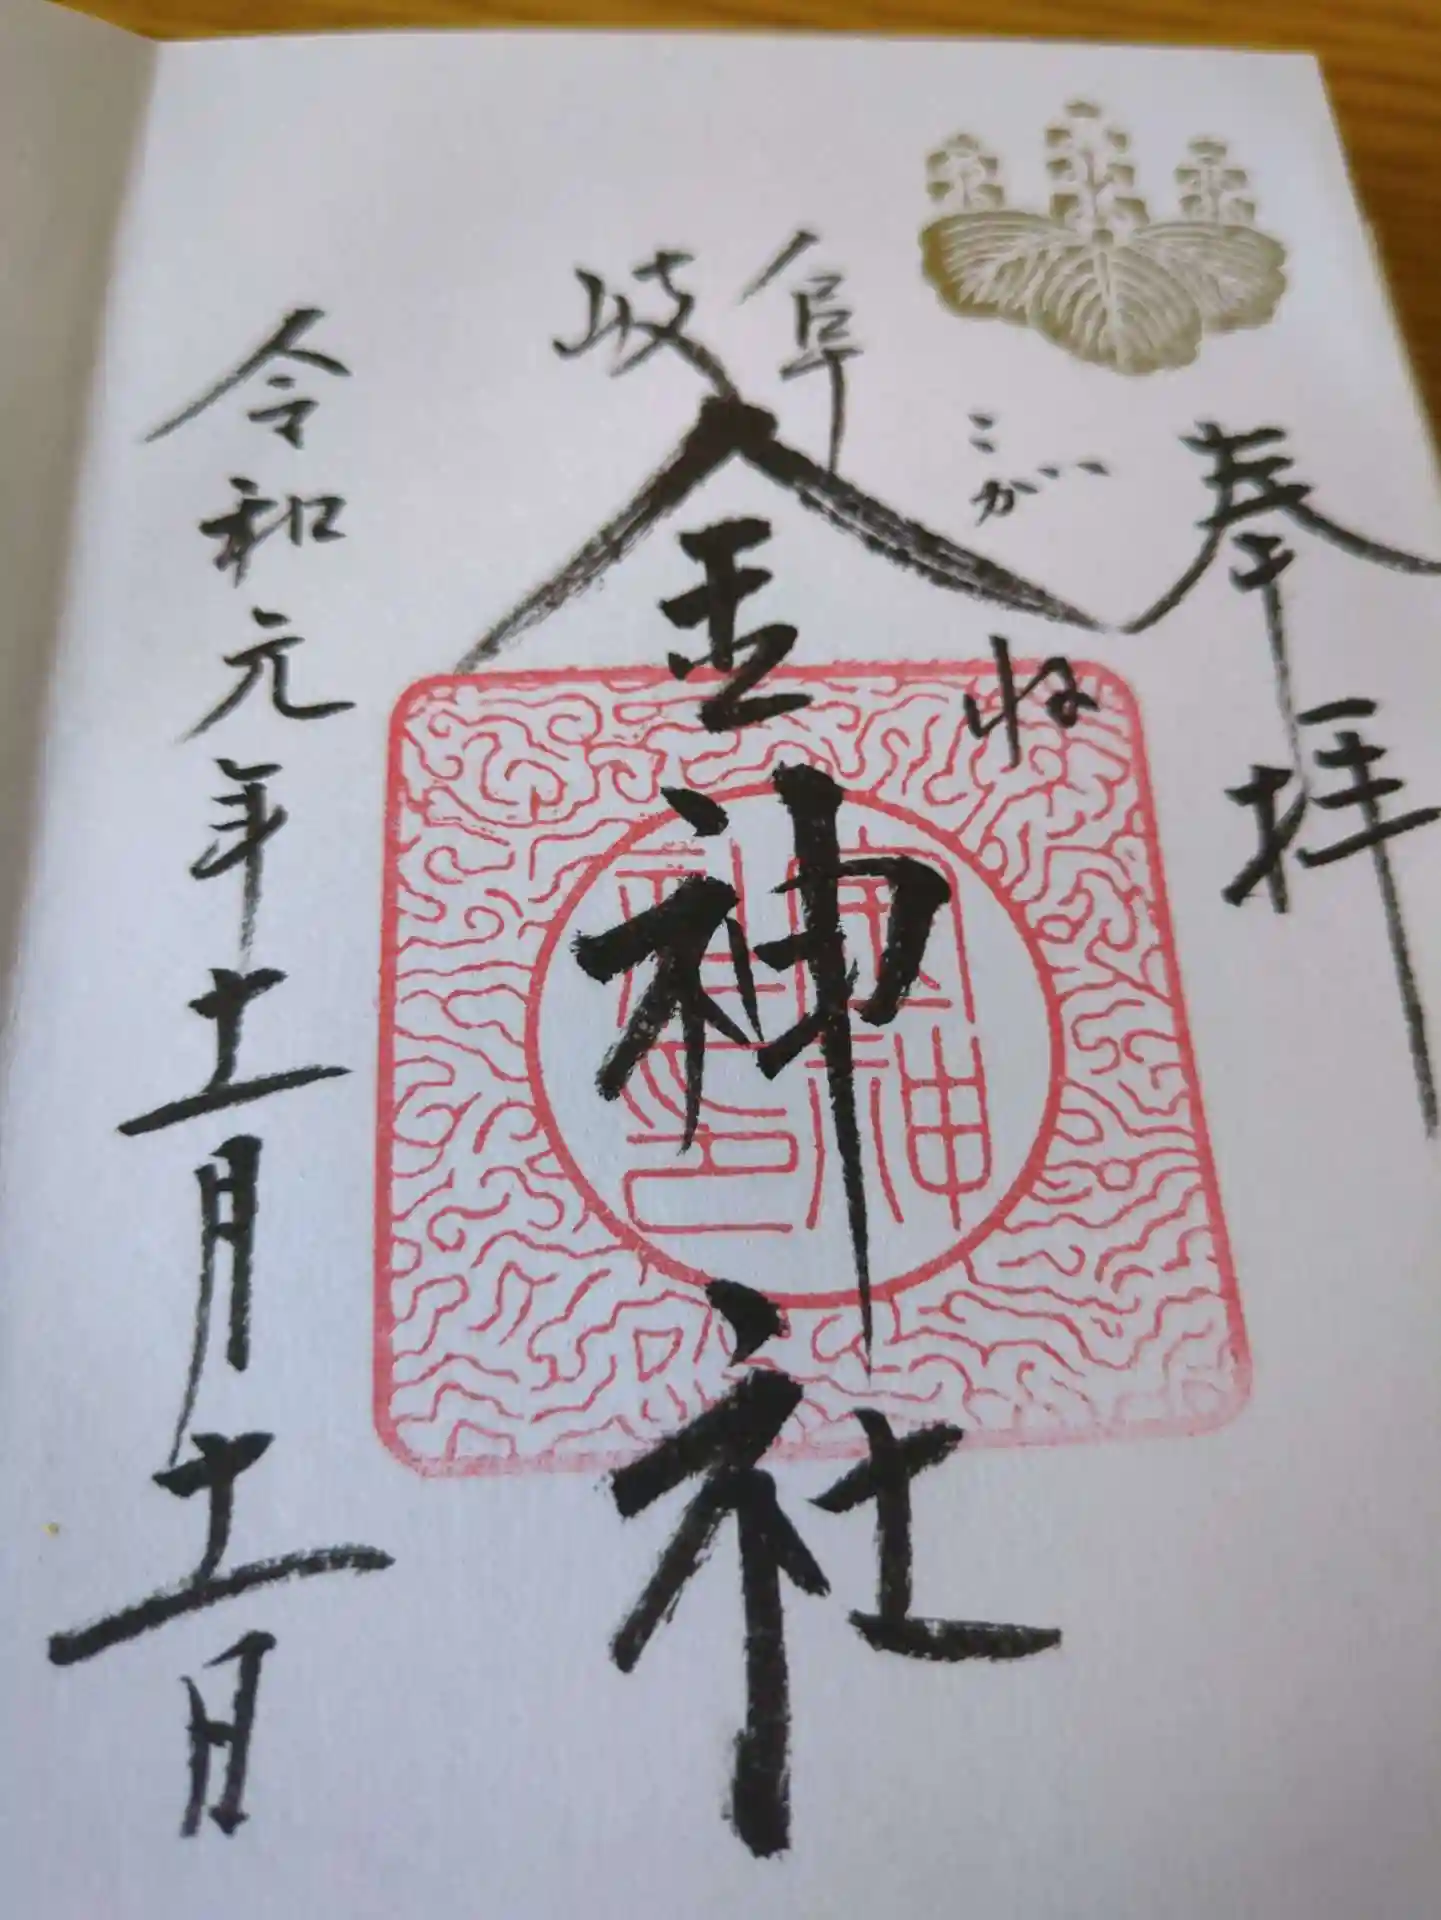 奉拝
こがね
岐阜
金神社
令和元年十一月十一日